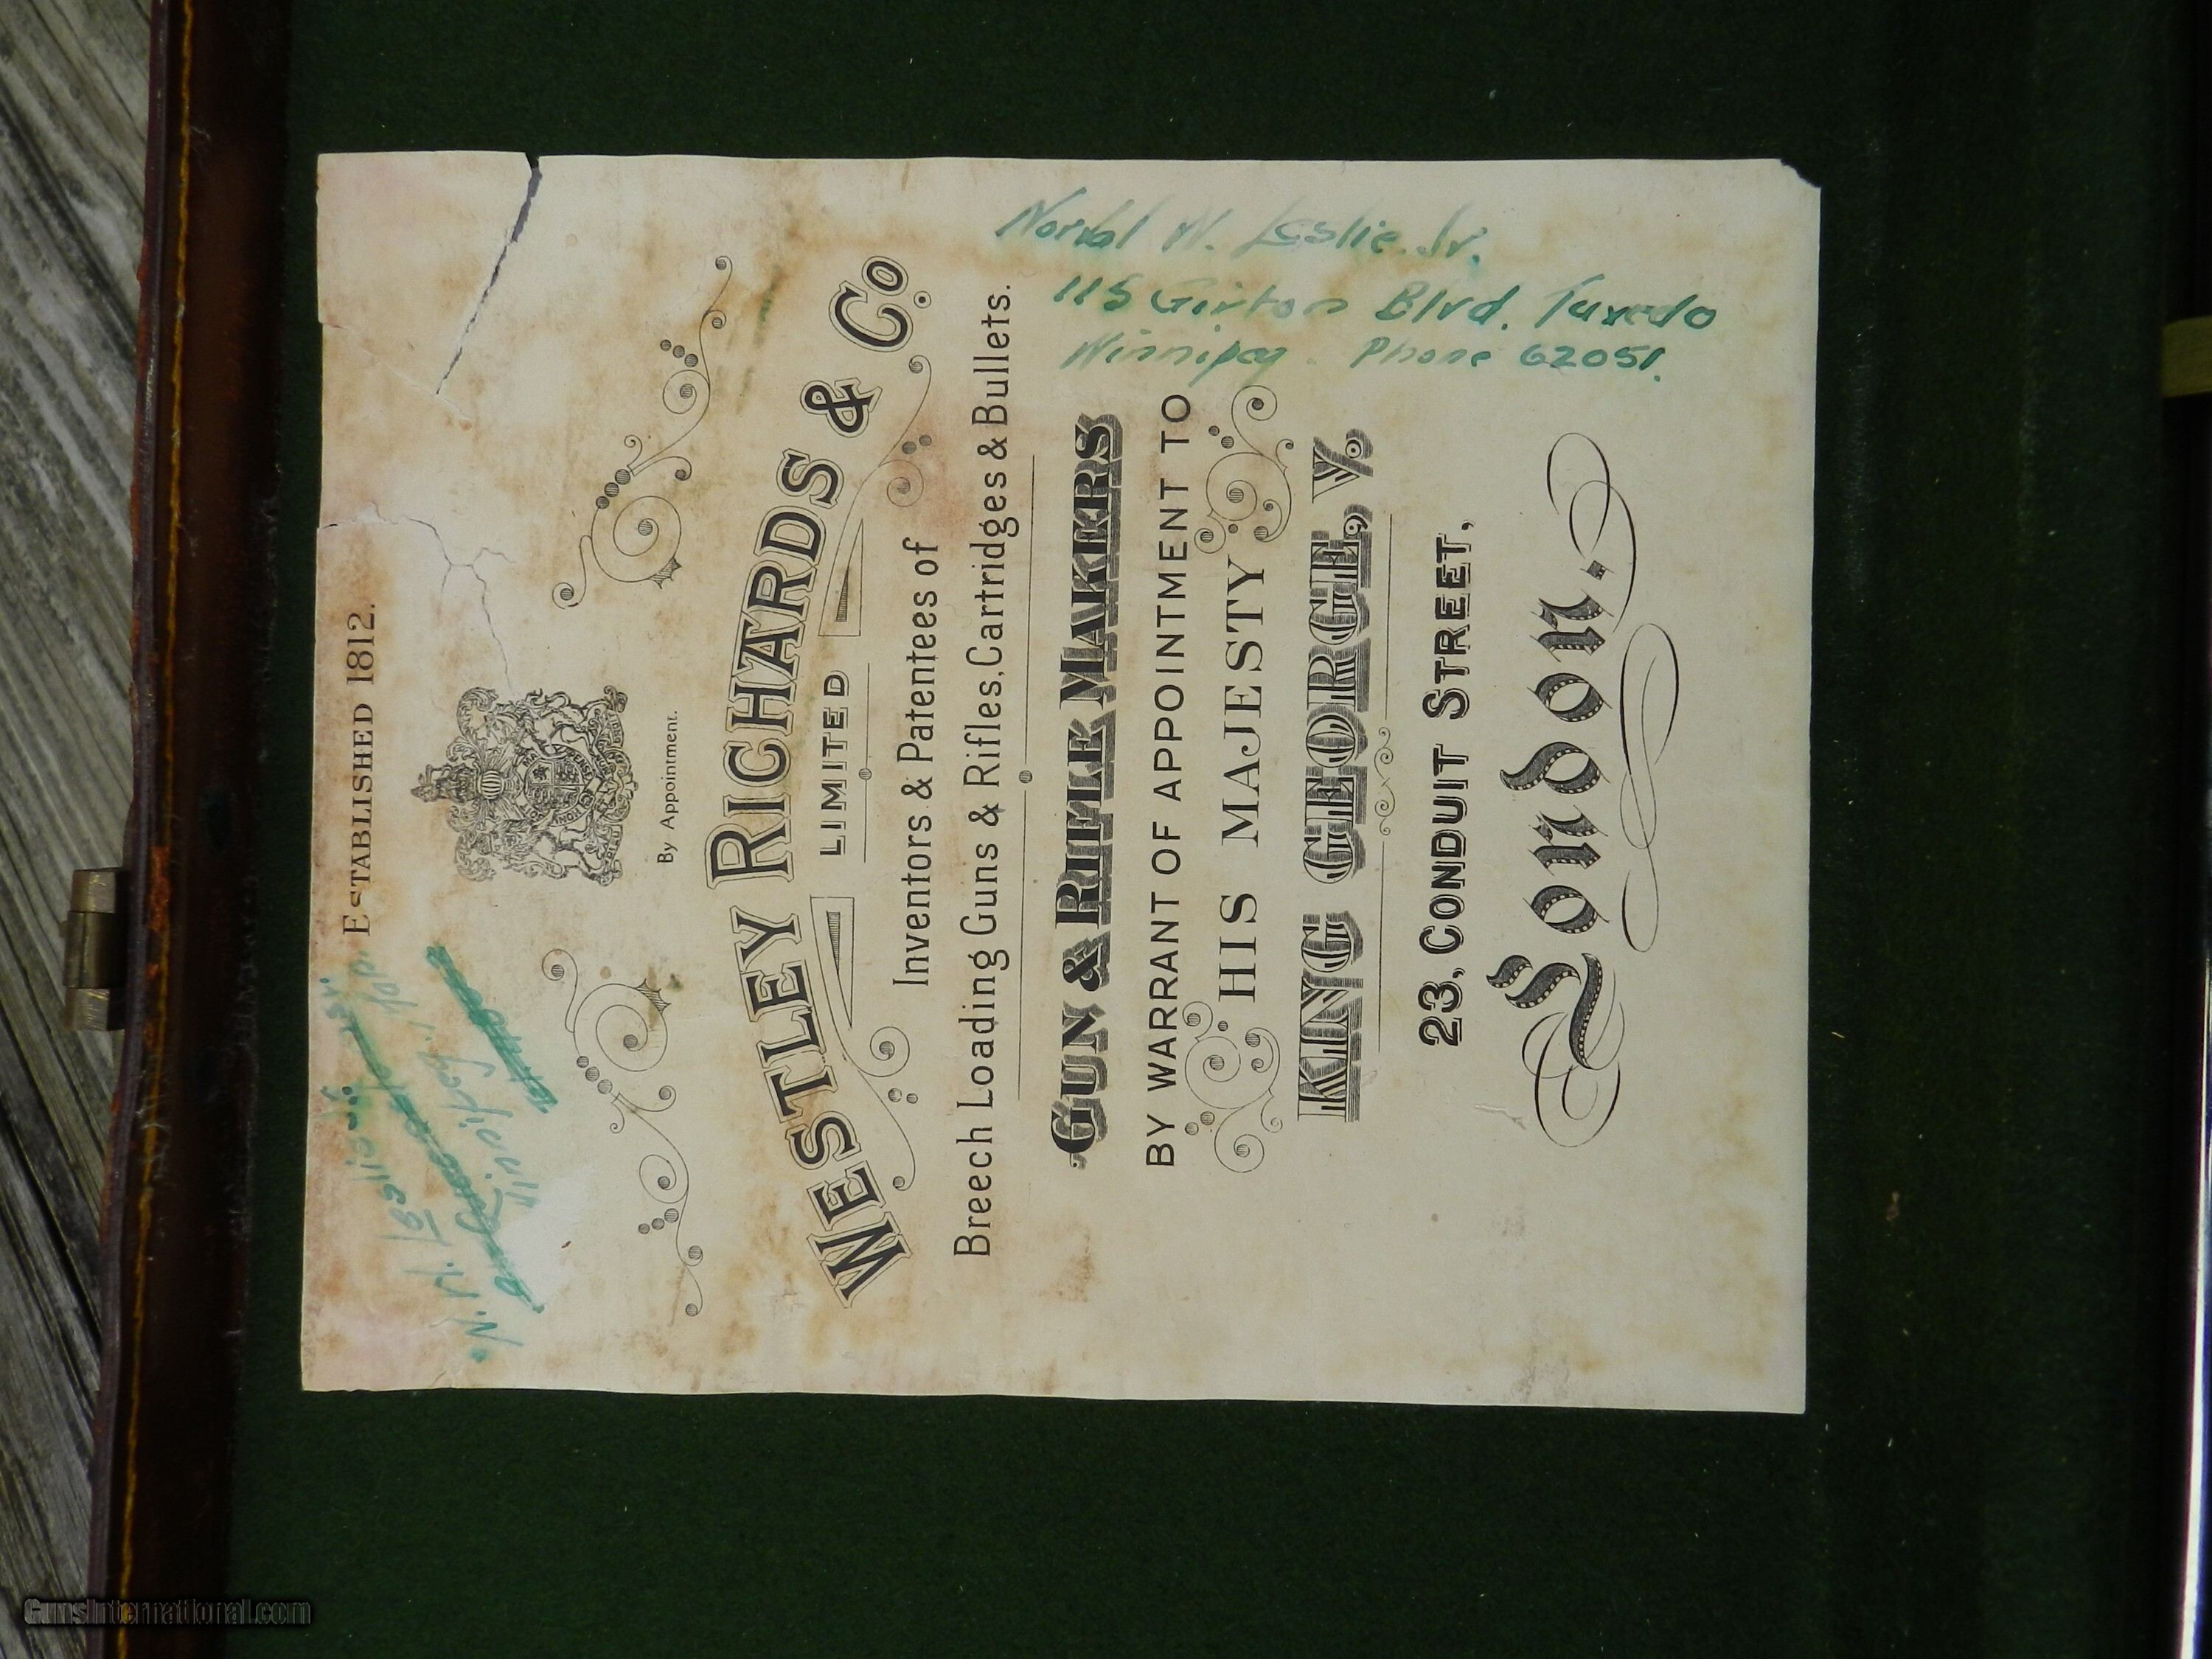 ESTABLISHED 1812.
N. W. Leslie Jr.
Winnipeg
By Appointment.
WESTLEY RICHARDS & Co.
LIMITED
Inventors & Patentees of
Breech Loading Guns & Rifles, Cartridges & Bullets.
GUN & RIFLE MAKERS
BY WARRANT OF APPOINTMENT TO
HIS MAJESTY
KING GEORGE, V.
23, CONDUIT STREET,
London.
Norval W. Leslie Jr.
115 Girton Blvd. Tuxedo
Winnipeg. Phone 62051.
GunsInternational.com